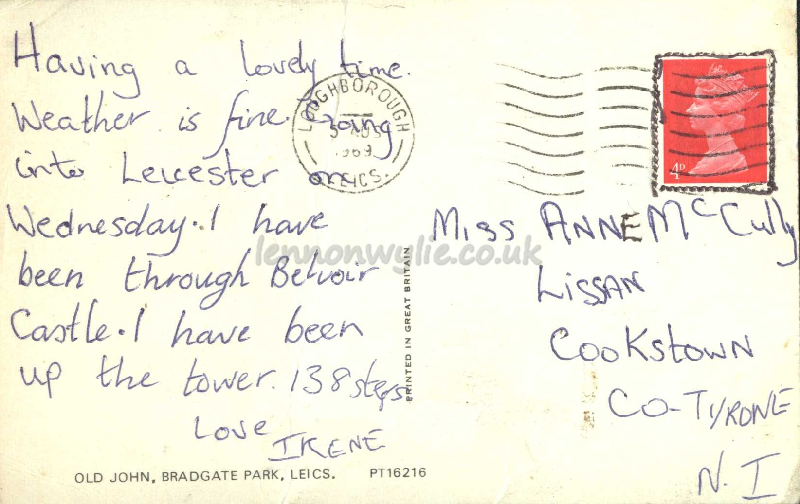 Having a lovely time.
Weather is fine. Going
into Leicester on
Wednesday. I have
been through Belvoir
Castle. I have been
up the tower. 138 steps
Love
IRENE
OLD JOHN, BRADGATE PARK, LEICS. PT16216
PRINTED IN GREAT BRITAIN
LOUGHBOROUGH
1969
LEICS.
4P
Miss ANNE McCully
LISSAN
COOKSTOWN
CO-TYRONE
N. I
lennonwylie.co.uk